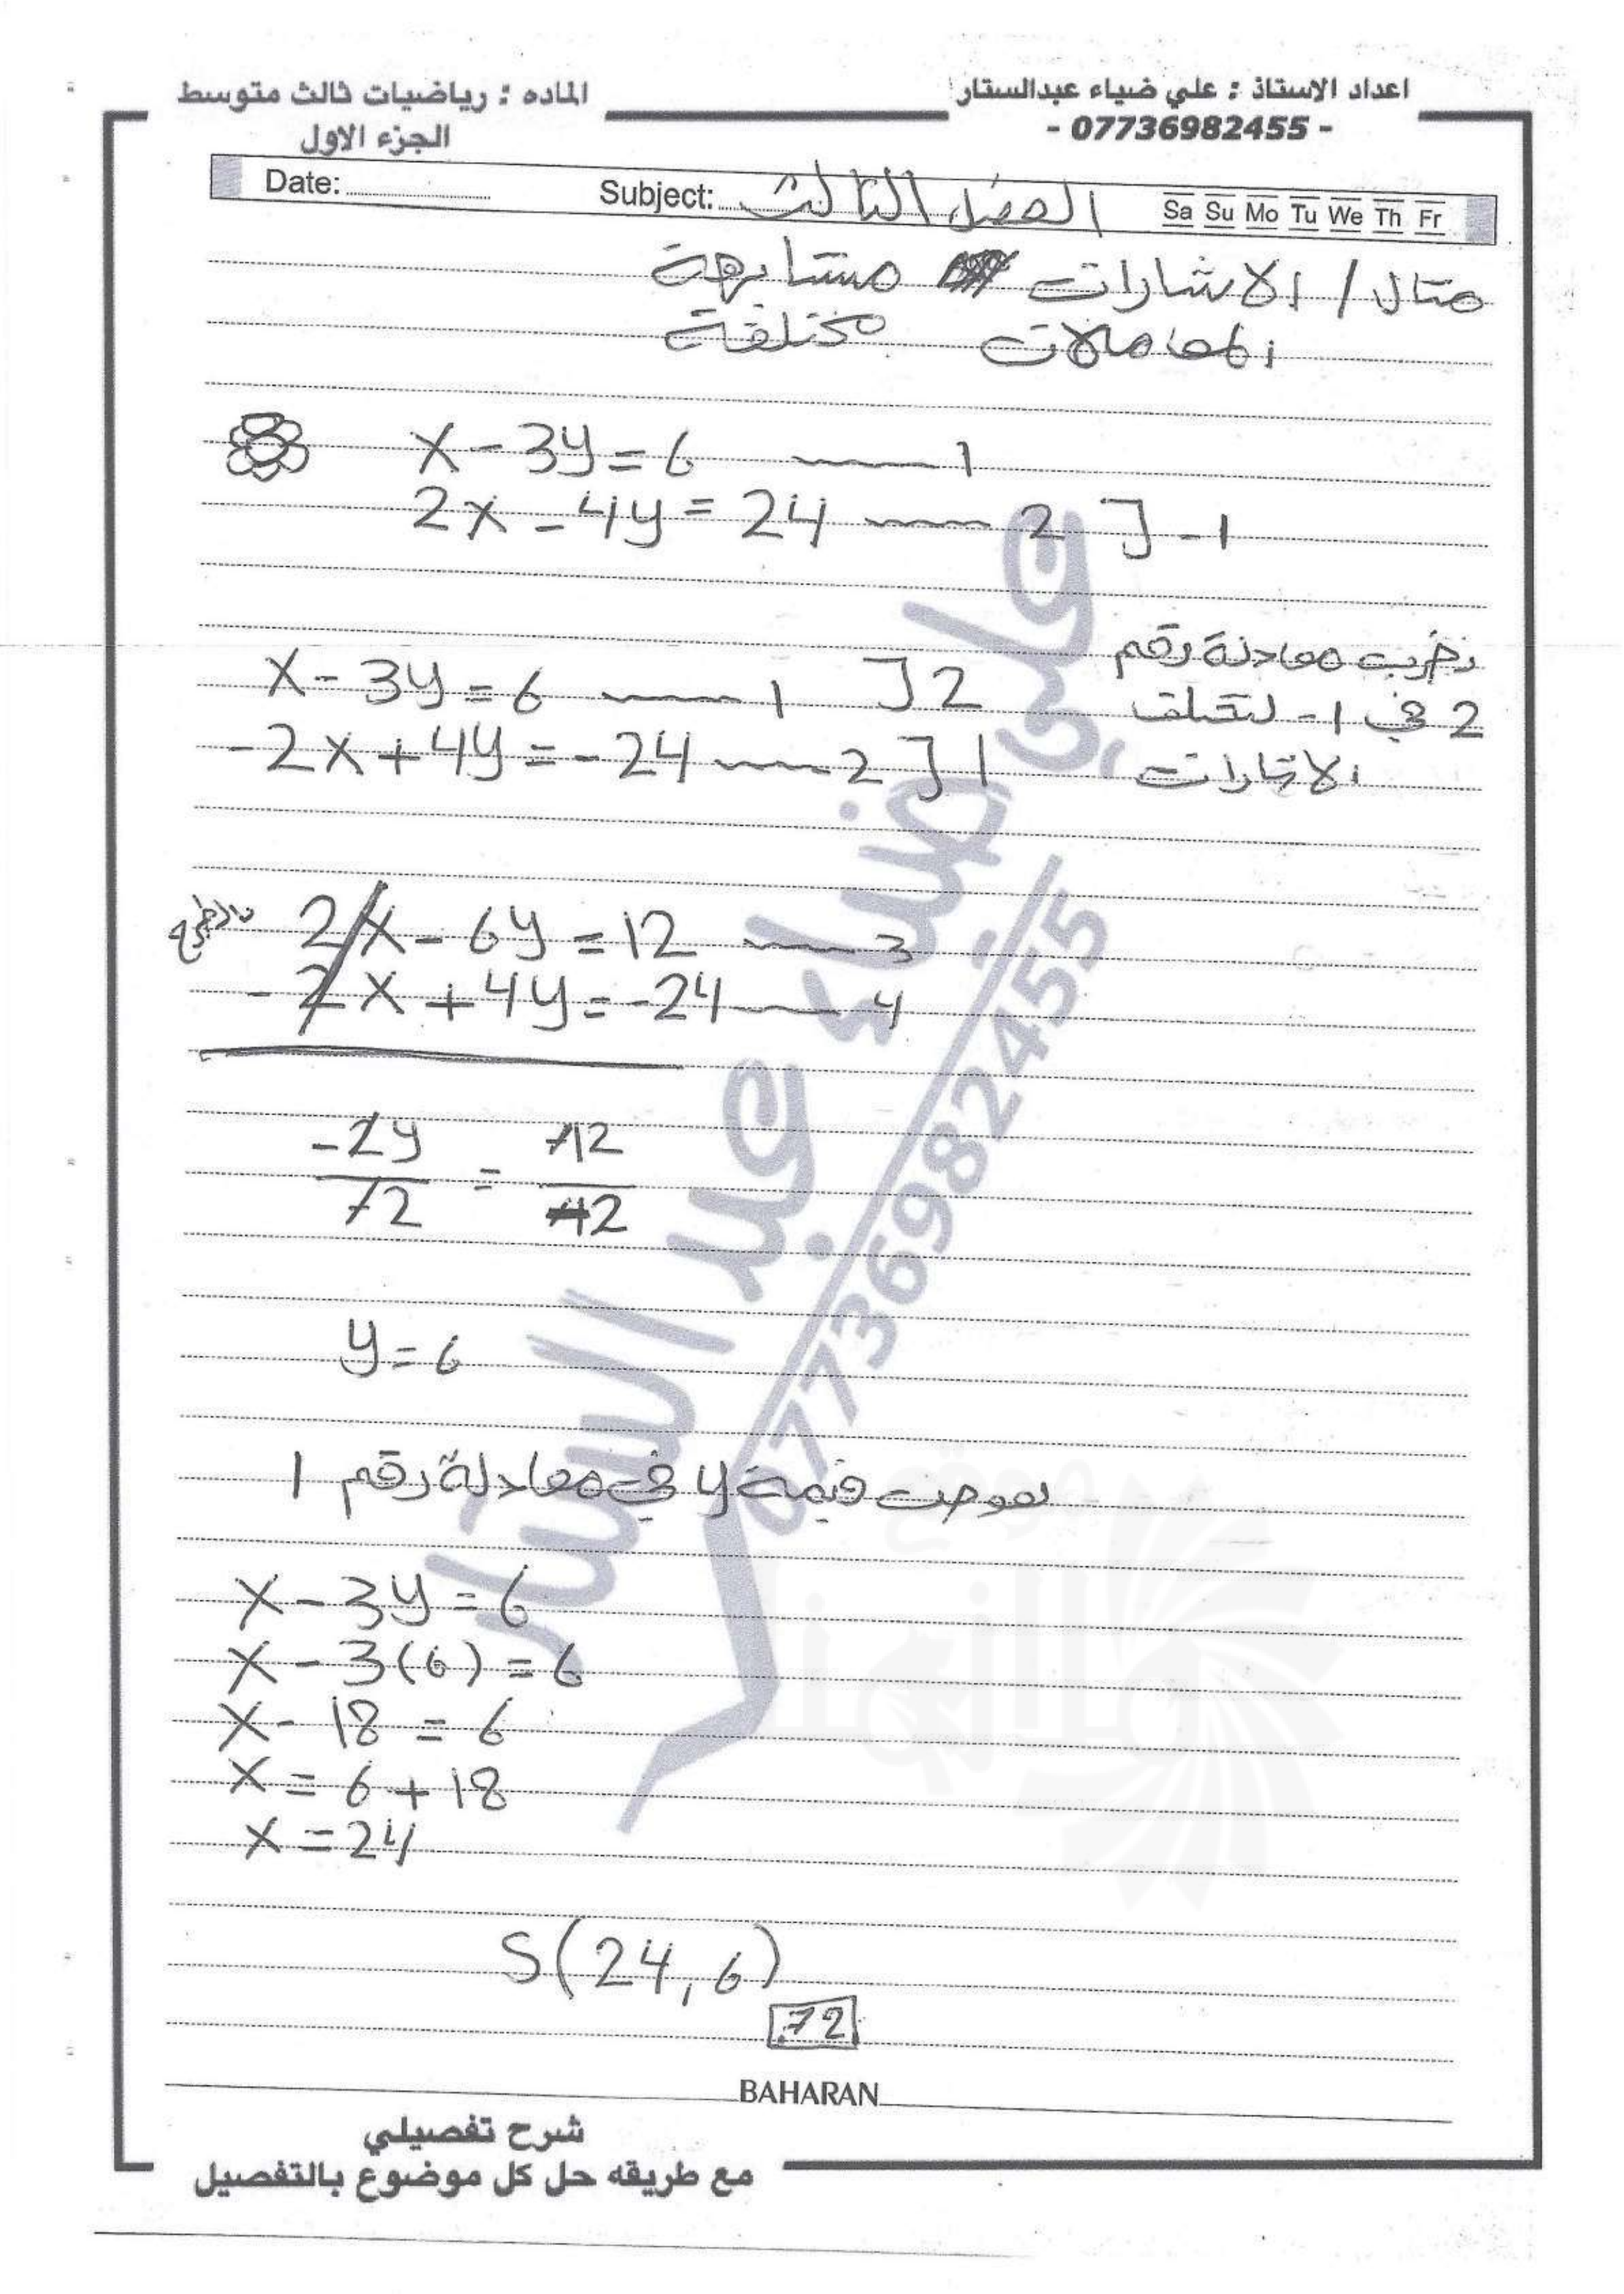 اعداد الاستاذ : علي ضياء عبدالستار
- 07736982455 -
الماده : رياضيات ثالث متوسط
الجزء الاول
Date: Subject: الفصل الثالث Sa Su Mo Tu We Th Fr
مثال / الاشارات متشابهة
المعاملات مختلفة
x - 3y = 6 1
2x - 4y = 24 2 ] -1
نضرب معادلة رقم
2 في 1- لتختلف
الاشارات
x - 3y = 6 1 ] 2
-2x + 4y = -24 2 ] 1
بالجمع 2x - 6y = 12 3
-2x + 4y = -24 4
-2y / -2 = -12 / -2
y = 6
نعوض قيمة y في معادلة رقم 1
x - 3y = 6
x - 3(6) = 6
x - 18 = 6
x = 6 + 18
x = 24
S(24, 6)
72
BAHARAN
شرح تفصيلي
مع طريقه حل كل موضوع بالتفصيل
علي ضياء عبد الستار
07736982455